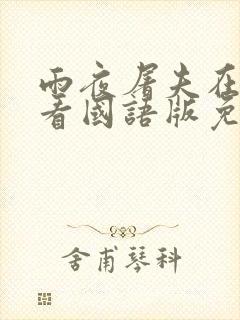 雨夜屠夫在
看國語版免
舍甫琴科